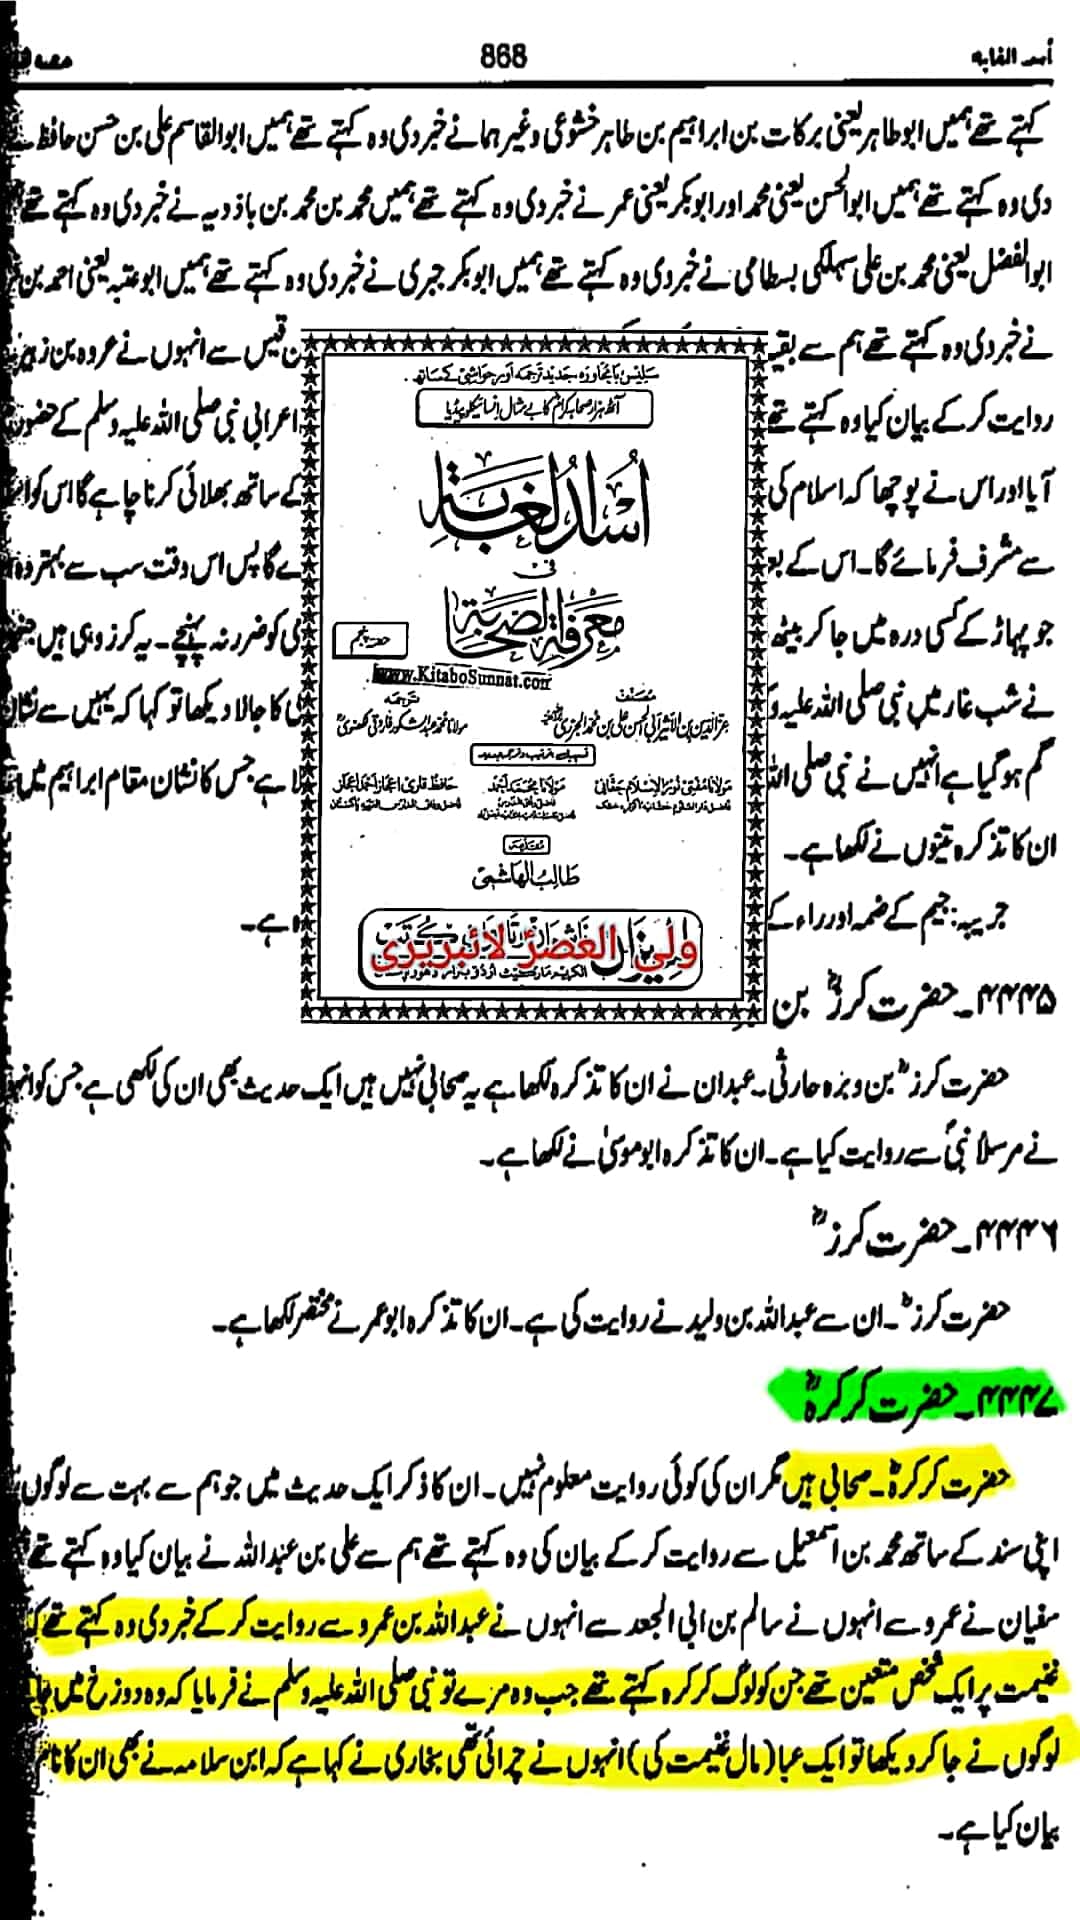 اسد الغابہ
868
کہتے تھے ہمیں ابو طاہر یعنی برکات بن ابراہیم بن طاہر خشوعی وغیرہما نے خبر دی وہ کہتے تھے ہمیں ابو القاسم علی بن حسن حافظ نے
دی وہ کہتے تھے ہمیں ابو الحسن یعنی محمد اور ابوبکر یعنی عمر نے خبر دی وہ کہتے تھے ہمیں محمد بن محمد بن باذویہ نے خبر دی وہ کہتے تھے
ابو الفضل یعنی محمد بن علی سہلکی بسطامی نے خبر دی وہ کہتے تھے ہمیں ابوبکر جبری نے خبر دی وہ کہتے تھے ہمیں ابو عتبہ یعنی احمد بن
نے خبر دی وہ کہتے تھے ہم سے بقیہ
ن قیس سے انہوں نے عروہ بن زبیر
روایت کر کے بیان کیا وہ کہتے تھے
اعرابی نبی صلی اللہ علیہ وسلم کے حضور
آیا اور اس نے پوچھا کہ اسلام کی
کے ساتھ بھلائی کرنا چاہے گا اس کو
سے مشرف فرمائے گا۔ اس کے بعد
ے گا پس اس وقت سب سے بہتر وہ
جو پہاڑ کے کسی درہ میں جا کر بیٹھ
می کو ضرر نہ پہنچے۔ یہ کرز وہی ہیں
نے شب غار میں نبی صلی اللہ علیہ و
ی کا جالا دیکھا تو کہا کہ یہیں سے نشان
گم ہو گیا ہے انہیں نے نبی صلی اللہ
لا ہے جس کا نشان مقام ابراہیم میں
ان کا تذکرہ تینوں نے لکھا ہے۔
جریبہ: جیم کے ضمہ اور راء کے
ہ ہے۔
سلیس بامحاورہ جدید ترجمہ اور حواشی کے ساتھ
آٹھ ہزار صحابہ کرام کا بے مثال انسائیکلوپیڈیا
اُسدُ الغَابَۃِ
فی
مَعْرِفَۃِ الصَّحَابَۃ
حصہ پنجم
www.KitaboSunnat.com
مصنف
عز الدین بن الاثیر ابی الحسن علی بن محمد الجزری
ترجمہ
مولانا محمد عبد الشکور فاروقی لکھنوی
مولانا مفتی نور الاسلام حقانی
مولانا محمد احمد
حافظ قاری اعجاز احمد اعجاز
مقدمہ
طالب الہاشمی
ولی العصرؑ لائبریری
۴۴۴۵۔ حضرت کرزؓ بن
حضرت کرزؓ بن وبرہ حارثی۔ عبدان نے ان کا تذکرہ لکھا ہے یہ صحابی نہیں ہیں ایک حدیث بھی ان کی لکھی ہے جس کو انہوں
نے مرسلاً نبیؐ سے روایت کیا ہے۔ ان کا تذکرہ ابو موسیٰ نے لکھا ہے۔
۴۴۴۶۔ حضرت کرزؓ
حضرت کرزؓ۔ ان سے عبداللہ بن ولید نے روایت کی ہے۔ ان کا تذکرہ ابو عمر نے مختصر لکھا ہے۔
۴۴۴۷۔ حضرت کرکرہؓ
حضرت کرکرہؓ۔ صحابی ہیں مگر ان کی کوئی روایت معلوم نہیں۔ ان کا ذکر ایک حدیث میں جو ہم سے بہت سے لوگوں
اپنی سند کے ساتھ محمد بن اسمٰعیل سے روایت کر کے بیان کی وہ کہتے تھے ہم سے علی بن عبداللہ نے بیان کیا وہ کہتے تھے
سفیان نے عمرو سے انہوں نے سالم بن ابی الجعد سے انہوں نے عبداللہ بن عمرو سے روایت کر کے خبر دی وہ کہتے تھے کہ
غنیمت پر ایک شخص متعین تھے جن کو لوگ کرکرہ کہتے تھے جب وہ مرے تو نبی صلی اللہ علیہ وسلم نے فرمایا کہ وہ دوزخ میں
لوگوں نے جا کر دیکھا تو ایک عبا (مال غنیمت کی) انہوں نے چرائی تھی بخاری نے کہا ہے کہ ابن سلامہ نے بھی ان کا نام
بیان کیا ہے۔